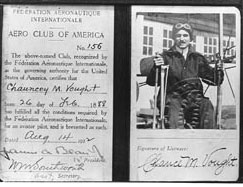 FÉDÉRATION AÉRONAUTIQUE
INTERNATIONALE
AERO CLUB OF AMERICA
No. 156
The above-named Club, recognized by
the Fédération Aéronautique Internationale, as
the governing authority for the
United States of America, certifies that
Chauncey M. Vought
born 26 day of Feb. 1888
having fulfilled all the conditions required by
the Fédération Aéronautique Internationale, for
an aviator pilot, and is brevetted as such.
Dated Aug 14 1912
President
Secretary
Signature of Licensee
Chance M. Vought